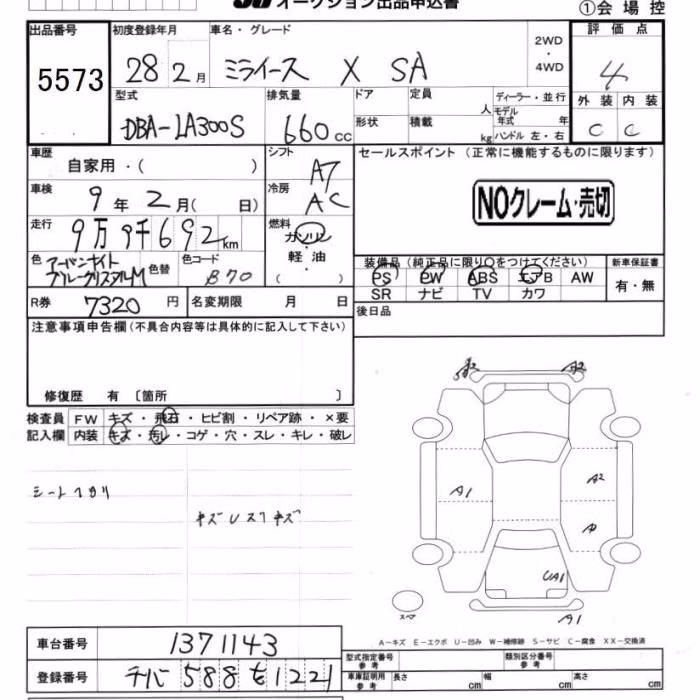 オークション出品申込書
①会場控
出品番号
5573
初度登録年月
28 2月
車名・グレード
ミライース X SA
2WD
・
4WD
評価点
4
外装 内装
C C
型式
DBA-LA300S
排気量
660cc
ドア
形状
定員 人
積載 kg
ディーラー・並行
モデル
年式 年
ハンドル 左・右
車歴
自家用・( )
シフト
A7
車検
9年2月( 日)
冷房
AC
走行
9万9千692km
燃料
ガソリン
・
軽油
( )
色
アーバンナイト
ブルークリスタルM
色替
色コード
B70
R券
7320円
名変期限 月 日
セールスポイント (正常に機能するものに限ります)
NOクレーム・売切
装備品(純正品に限り○をつけてください)
PS PW ABS エアB AW
SR ナビ TV カワ
新車保証書
有・無
後日品
注意事項申告欄(不具合内容等は具体的に記入して下さい)
修復歴 有〔箇所 〕
検査員
記入欄
FW キズ・飛石・ヒビ割・リペア跡・×要
内装 キズ・汚レ・コゲ・穴・スレ・キレ・破レ
キズUスリキズ
A2
A1
A2
A
UA1
A1
スペア
A-キズ E-エクボ U-凹み W-補修跡 S-サビ C-腐食 XX-交換済
車台番号
1371143
登録番号
チバ 588 を 1221
型式指定番号
参考
類別区分番号
参考
車庫証明用
参考
長さ cm
幅 cm
高さ cm